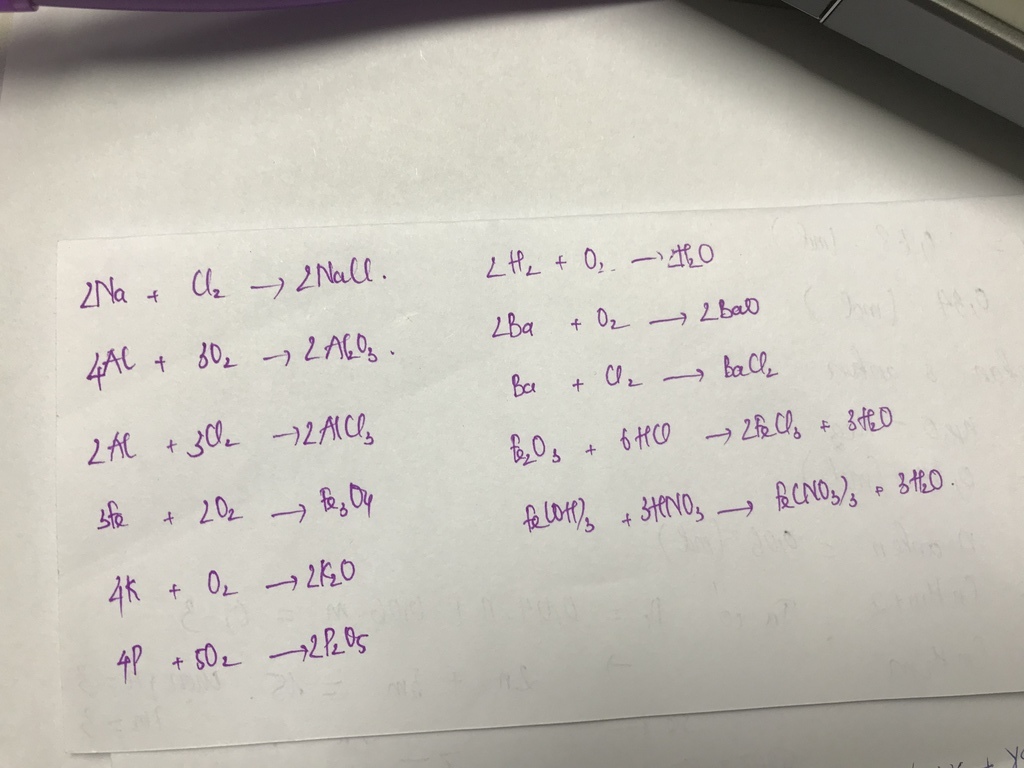 2Na + Cl₂ → 2NaCl.
4Al + 3O₂ → 2Al₂O₃.
2Al + 3Cl₂ → 2AlCl₃
3Fe + 2O₂ → Fe₃O₄
4K + O₂ → 2K₂O
4P + 5O₂ → 2P₂O₅
2H₂ + O₂ → 2H₂O
2Ba + O₂ → 2BaO
Ba + Cl₂ → BaCl₂
Fe₂O₃ + 6HCl → 2FeCl₃ + 3H₂O
Fe(OH)₃ + 3HNO₃ → Fe(NO₃)₃ + 3H₂O.